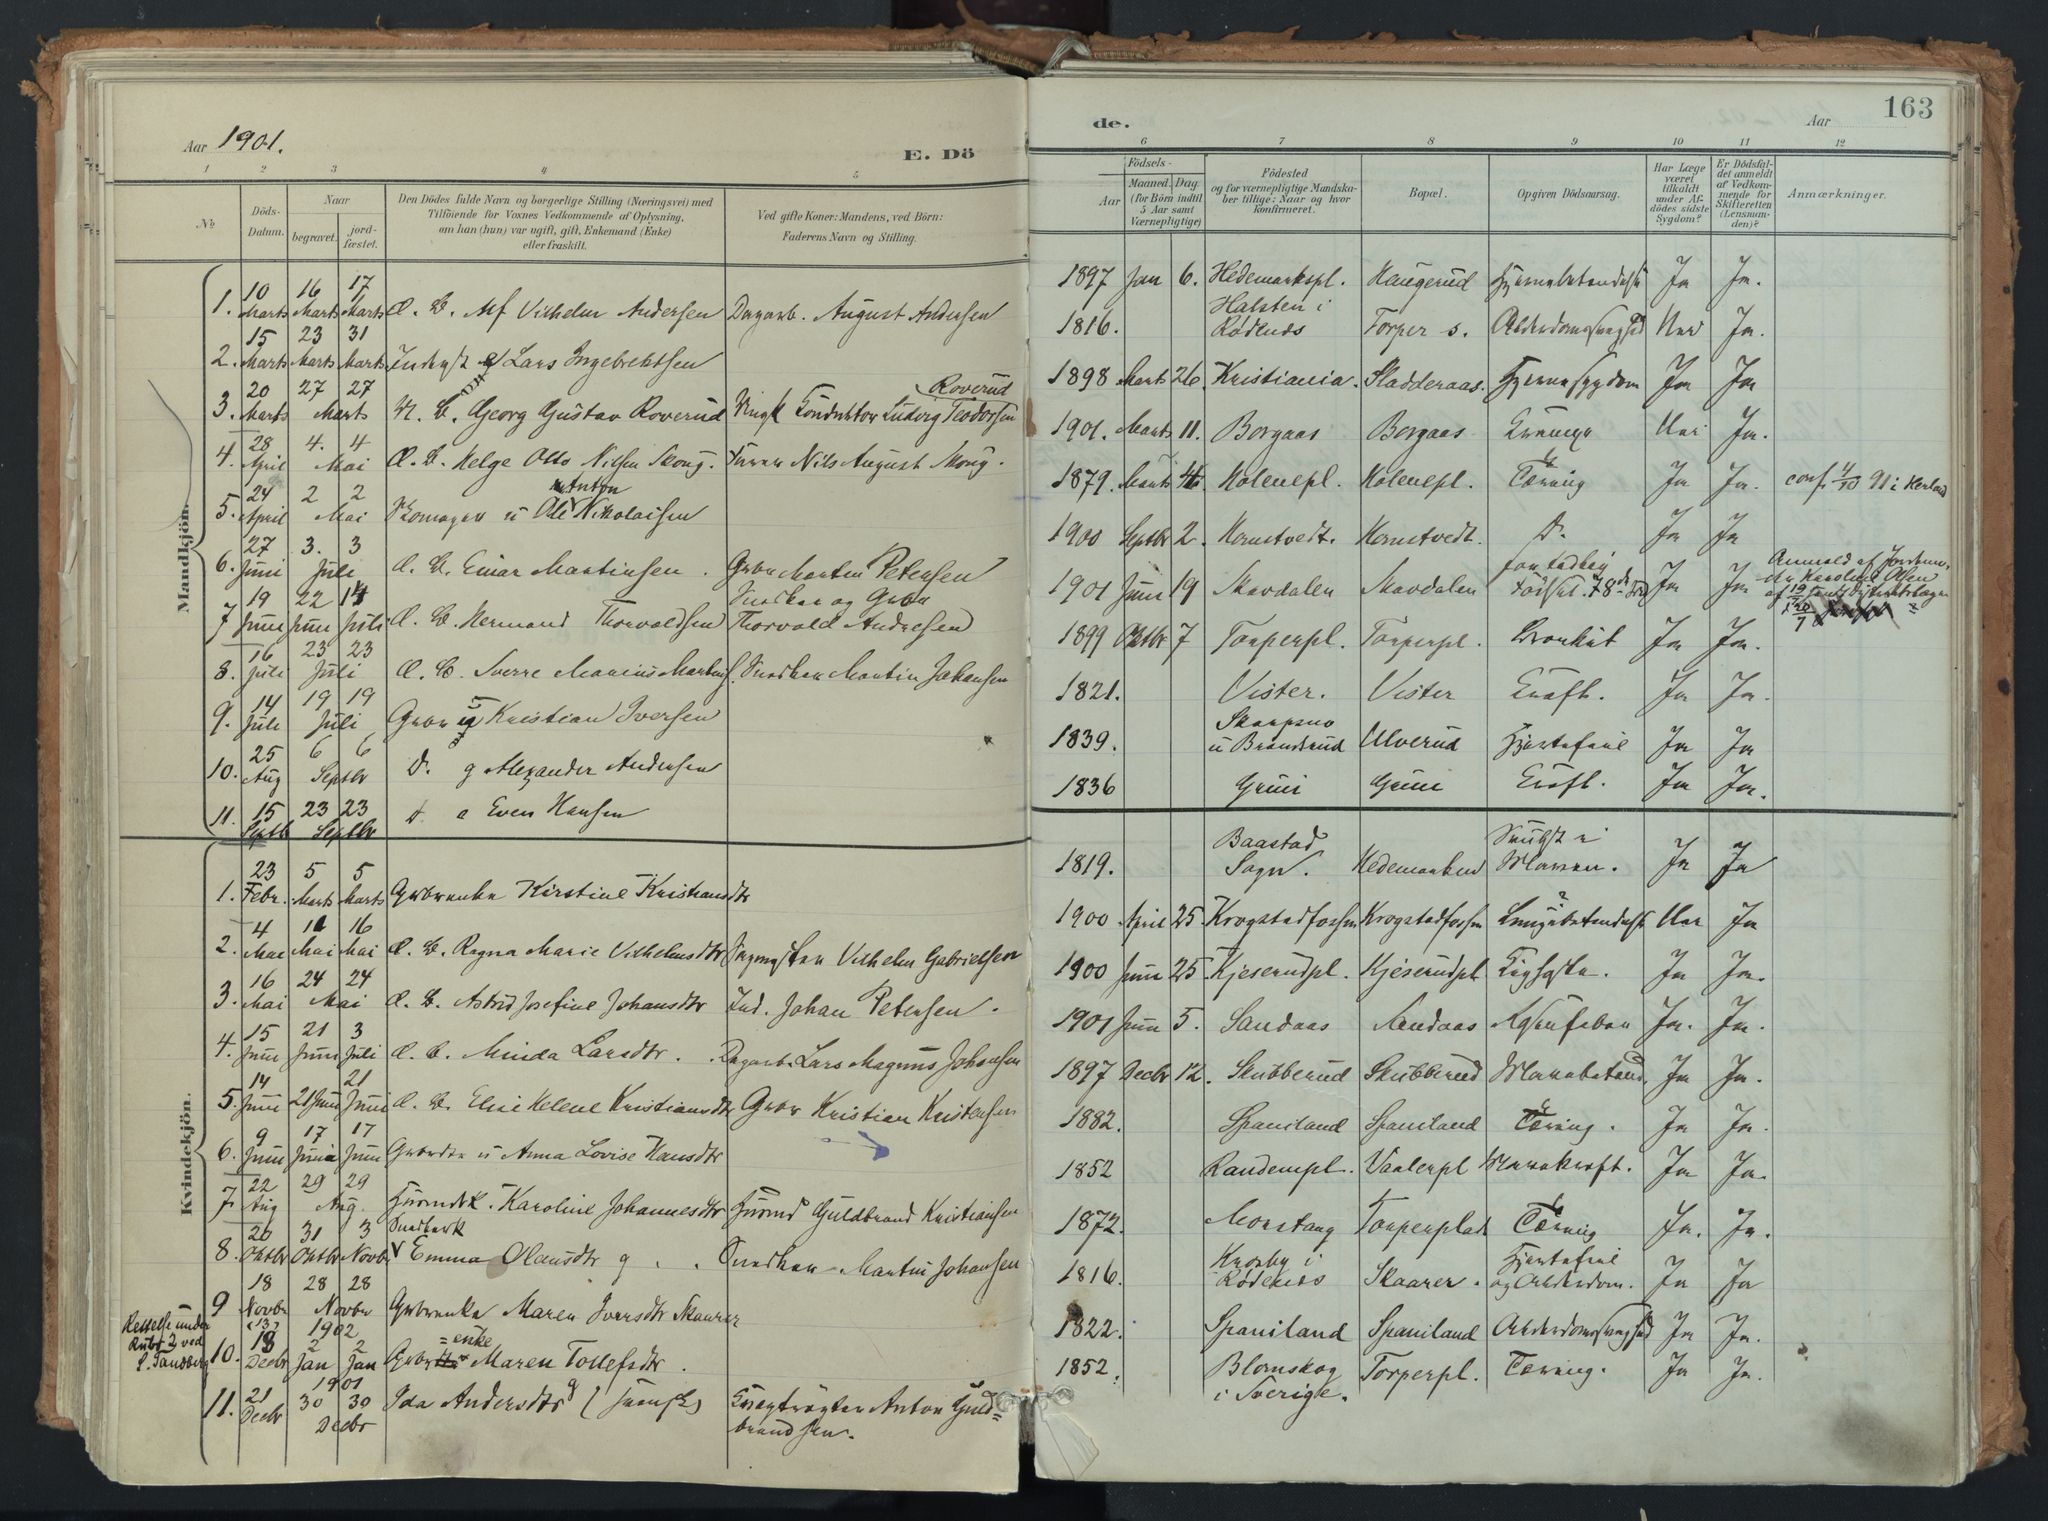 Aar 1901.
E. Dö
1 2 3 4 5
No
Döds-Datum.
Naar
begravet.
jord-fæstet.
Den Dödes fulde Navn og borgerlige Stilling (Næringsvei) med
Tilföiende for Voxnes Vedkommende af Oplysning,
om han (hun) var ugift, gift, Enkemand (Enke)
eller fraskilt.
Ved gifte Koner: Mandens, ved Börn:
Faderens Navn og Stilling.
Mandkjön.
1. 10 Marts 16 Marts 17 Marts Æ. B. Alf Vilhelm Andersen Dagarb. August Andersen
2. 15 Marts 23 Marts 31 Marts Lars Ingebrektsen
3. 20 Marts 27 27 Marts U. B. Georg Gustav Roverud Konduktør Ludvig Teodorsen Roverud
4. 28 April 4. 4 Mai Æ. B. Helge Otto Nilsen Skoug. Nils August Skoug.
5. 24 April 2 2 Mai Skomager u Ole Anton Nikolaisen
6. 27 Juni 3. 3 Juli Æ. B. Einar Martinsen. Gbr Martin Petersen
7 19 Juni 22 Juni 14 Juli Æ. B. Hermand Thorvaldsen Snedker og Gbr Thorvald Andresen
8. 16 Juli 23 23 Juli Æ. B. Sverre Marius Martins. Snedker Martin Johansen
9. 14 Juli 19 19 Juli Kristian Iversen
10. 25 Aug 6 6 Septbr D. g Alexander Andersen
11. 15 Septb 23 23 Septbr D. Even Hansen
Kvindekjön.
1. 23 Febr. 5 Marts 5 Marts Kirstine Kristiansdtr
2. 4 Mai 11 Mai 16 Mai Æ. B. Ragna Marie Vilhelmsdtr Vilhelm Gabrielsen
3. 16 Mai 24 24 Mai Æ. B. Astrid Josefine Johansdtr Ind. Johan Petersen.
4. 15 Juni 21 Juni 3 Juli Æ. B. Minda Larsdtr. Dagarb. Lars Magnus Johansen
5. 14 Juni 21 Juni 21 Juni Æ. B. Elise Helene Kristiansdtr Gbr Kristian Kristensen
6. 9 Juni 17 Juni 17 Juni u Anna Lovise Hansdtr
7. 22 Aug 29 29 Aug. Karoline Johannesdtr Guldbrand Kristiansen
8. 20 Oktbr 31 Oktbr 3 Novbr Emma Olausdtr g.. Snedker Martin Johansen
9 18 Novbr 28 28 Novbr Maren Iversdtr Skaarer
Rettelse under
Rubr 2 ved
L. Sandberg
10. (13) 18 Decbr 1902 2 Jan 2 Jan = enke Maren Tollefsdtr.
11. 21 Decbr 1901 30 30 Decbr Ida Andersdtr g (svensk) Anton Guld=
brandsen.
de.
Aar
163
6 7 8 9 10 11 12
Födsels-
Aar
Maaned. Dag
(for Börn indtil
5 Aar samt
Værnepligtige)
Födested
og for værnepligtige Mandska-
ber tillige: Naar og hvor
konfirmeret.
Bopæl.
Opgiven Dödsaarsag.
Har Læge
været
tilkaldt
under Af-
dödes sidste
Sygdom?
Er Dödsfal-
det anmeldt
af Vedkom-
mende for
Skifteretten
(Lensman-
den)?
Anmærkninger.
1897 Jan 6. Hedemarkspl. Haugerud Hjernebetændelse Ja Ja.
1816. Halsten i Rødenes Torper s. Alderdomssvaghed Nei Ja.
1898 Marts 26 Kristiania. Sladderaas. Hjernesygdom Ja Ja
1901. Marts 11. Borgaas Borgaas Krampe Nei Ja.
1879. Marts 4. Holenepl. Holenepl. Tæring Ja Ja. conf. 4/10 91 i Herland
1900 Septbr 2. Hernstvedt. Hernstvedt. D. Ja Ja
1901 Juni 19 Mardalen Mardalen for tidlig fødsel. Ja Ja Anmeld af Jordemo-
der Karoline Olsen
1899 Oktbr 7 Torperpl. Torperpl. Bronkit Ja Ja.
1821. Vister. Vister Kræft. Ja Ja.
1839. Skarpsno u Brandsrud Ulverud Hjertefeil Ja Ja
1836 Gruni Gruni Kræft. Ja Ja.
1819. Baastad Sogn. Hedemarken Maven. Ja Ja
1900 April 25 Krogstadfossen Krogstadfossen Lungebetændelse ? Nei Ja
1900 Juni 25 Kjeserudpl. Kjeserudpl Kighoste. Ja Ja.
1901 Juni 5. Sandaas Sandaas Ja. Ja.
1897 Decbr 12. Skubberud Skubberud Ja Ja.
1882. Spaniland Spaniland Tæring. Ja Ja.
1852 Raudempl. Vaalerpl Mavekræft. Ja Ja.
1872. Morstang Torperplads Tæring Ja. Ja.
1816. Krosby i Rødenes Skaarer. Hjertefeil og Alderdom. Ja Ja
1822. Spaniland Spaniland Alderdomssvaghed Ja Ja.
1852. Blomskog i Sverige. Torperpl. Tæring. Ja Ja.